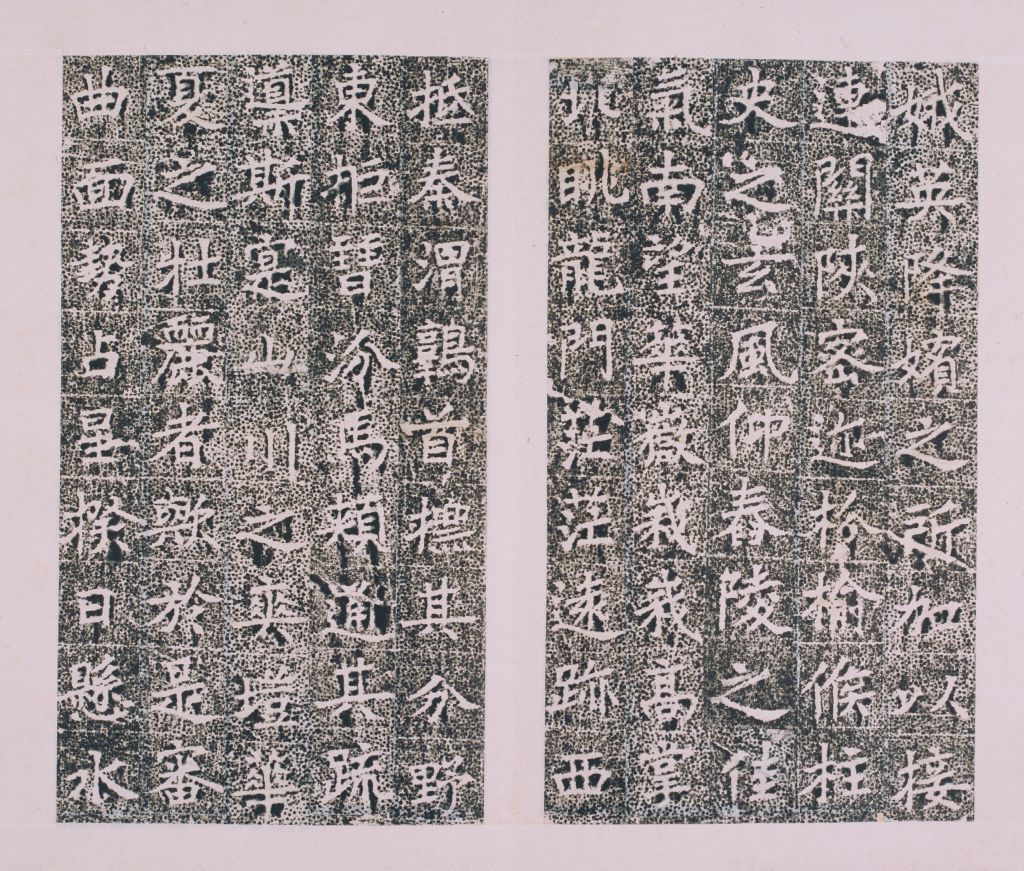 娥英降嬪之近加以接
連關陝密迩枌榆候柱
史之玄風仰舂陵之佳
氣南望華嶽峩峩高掌
北眺龍門茫茫遠跡西
抵秦渭鶉首摽其分野
東拒晉汾馬頰通其疏
導斯寔山川之爽塏華
夏之壯麗者歟於是審
曲面勢占星揆日懸水